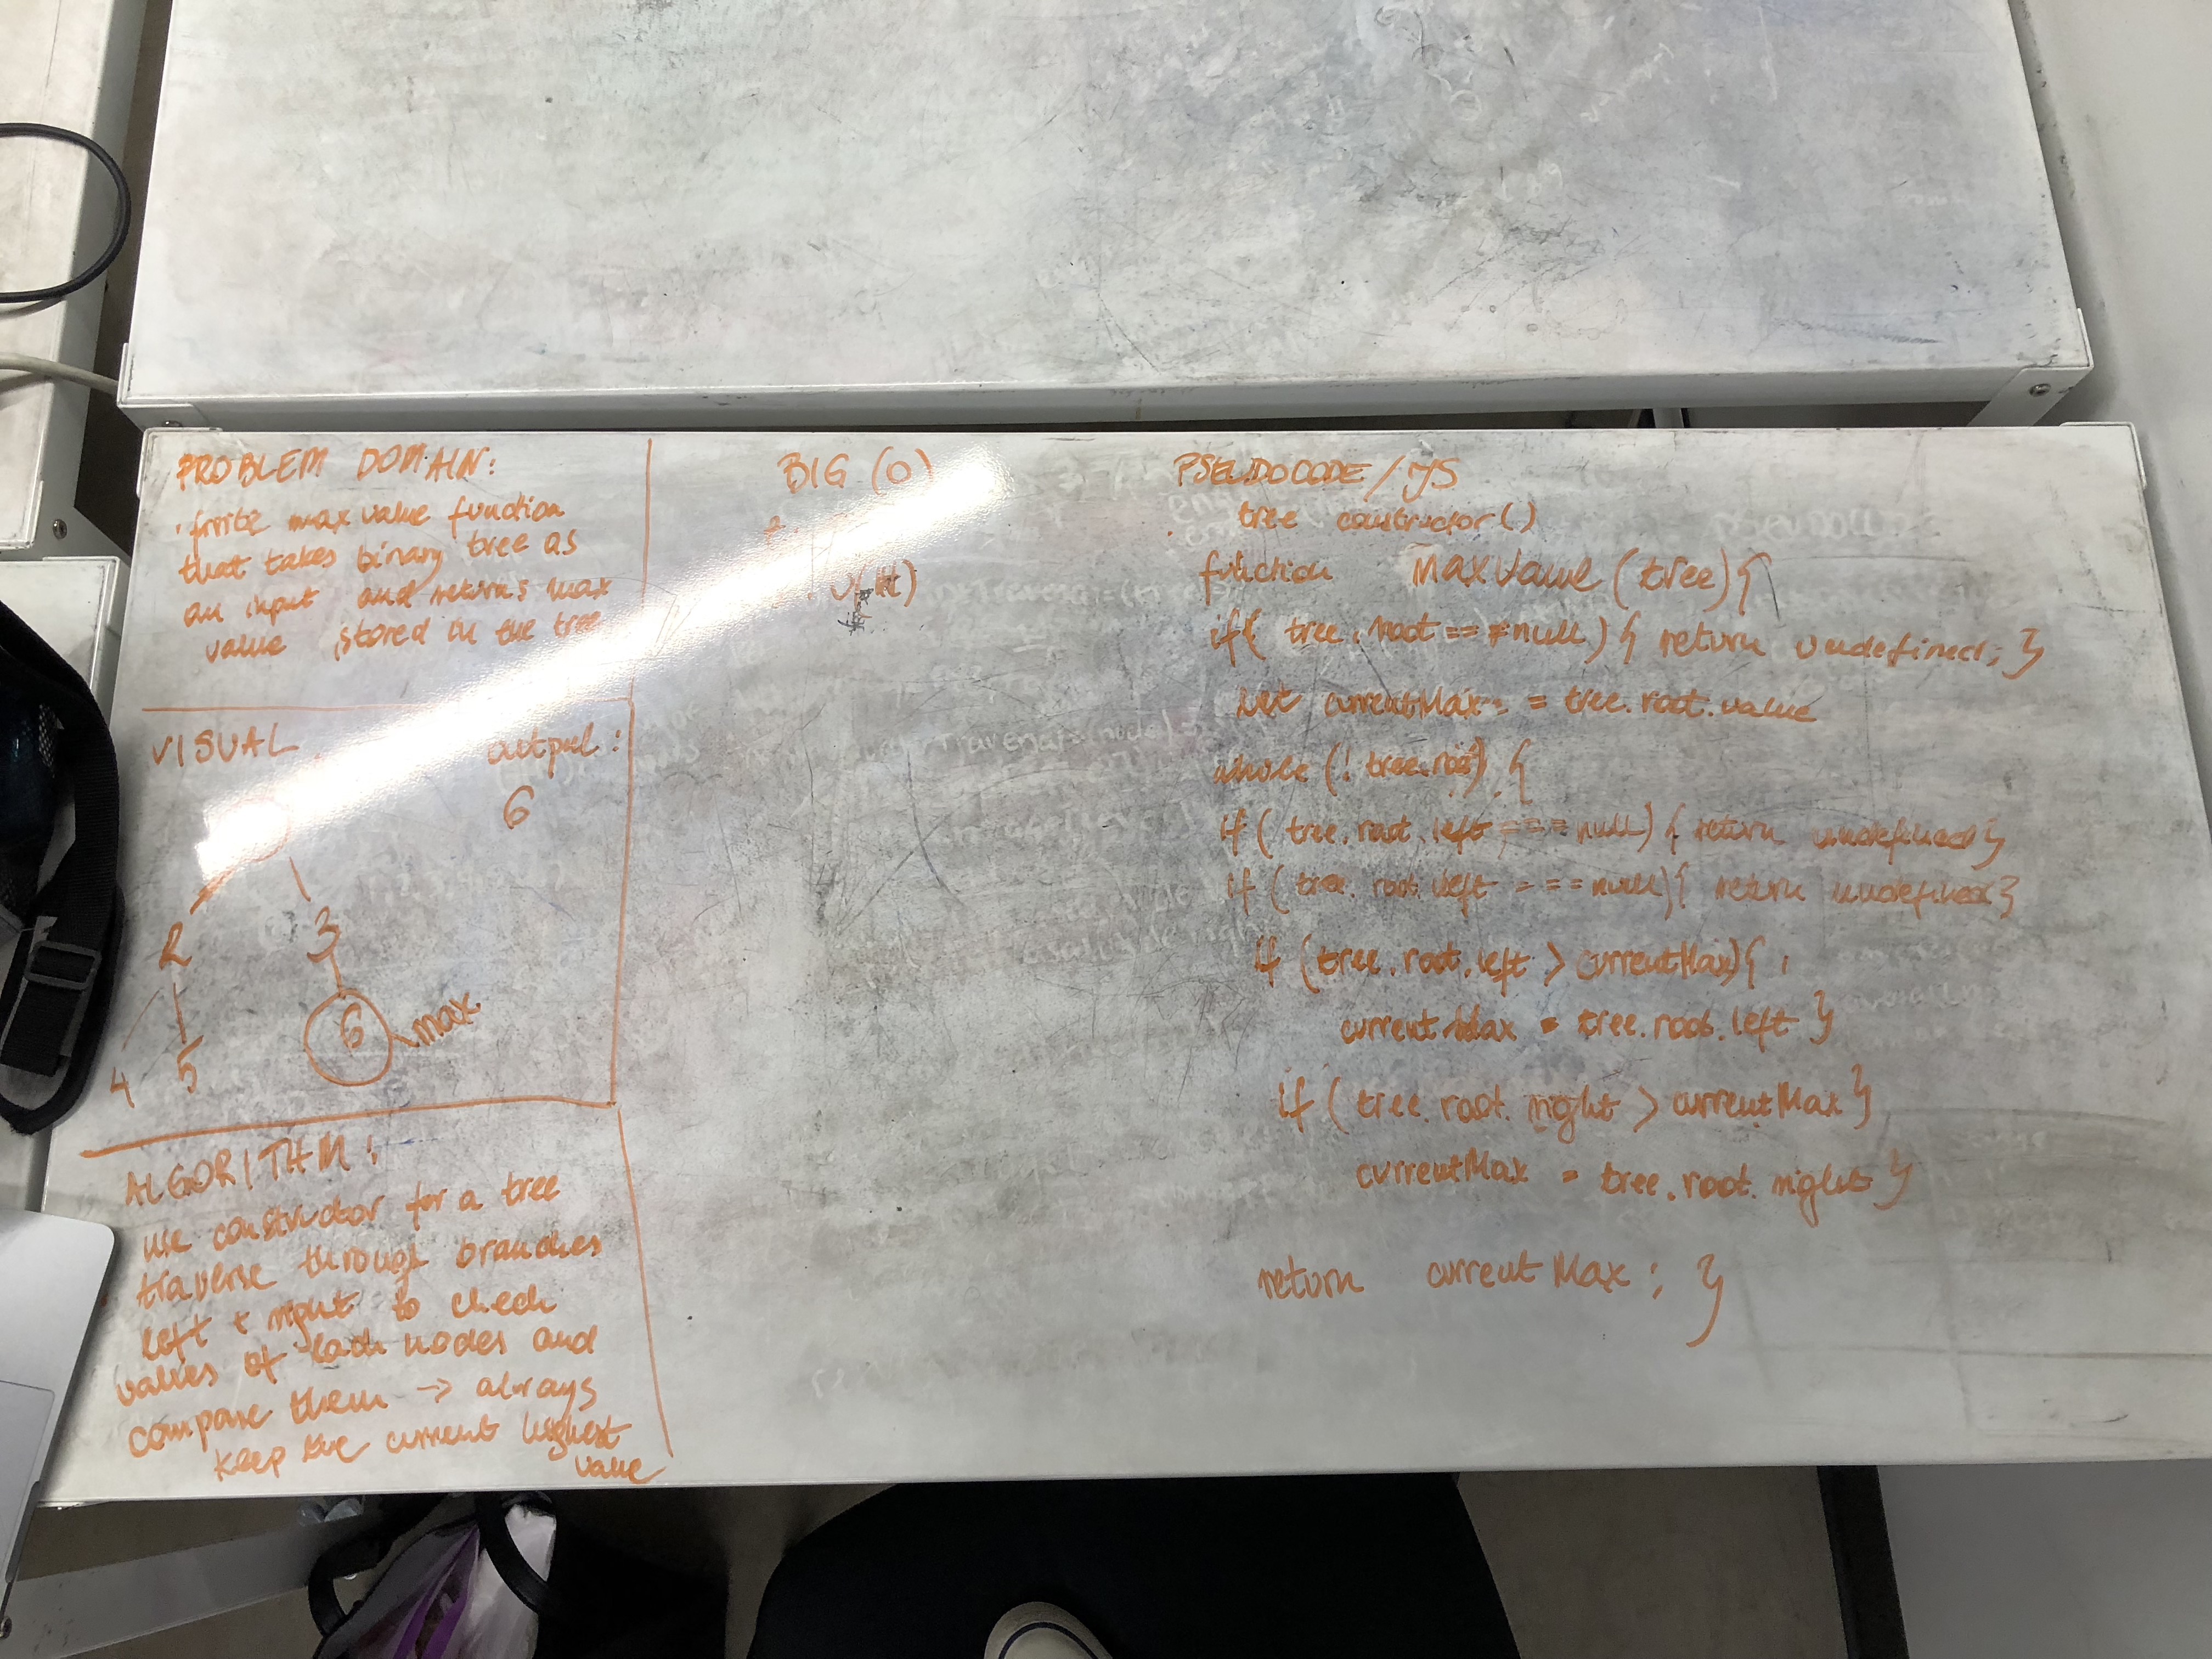 PROBLEM DOMAIN:
max value function
that takes binary tree as
an input and returns max
value stored in the tree
VISUAL
output:
6
2
3
4
5
6
max
ALGORITHM:
use constructor for a tree
traverse through branches
left + right to check
values of each nodes and
compare them → always
keep the current highest
value
BIG (O)
PSEUDOCODE / JS
tree constructor()
function maxValue (tree) {
if( tree.root == null ) { return undefined; }
let currentMax = tree.root.value
while (! tree.root) {
if ( tree.root.left === null) { return undefined }
if ( tree.root.left === null) { return undefined }
if (tree.root.left > currentMax) {
currentMax = tree.root.left }
if ( tree.root.right > currentMax }
currentMax = tree.root.right }
return currentMax ; }